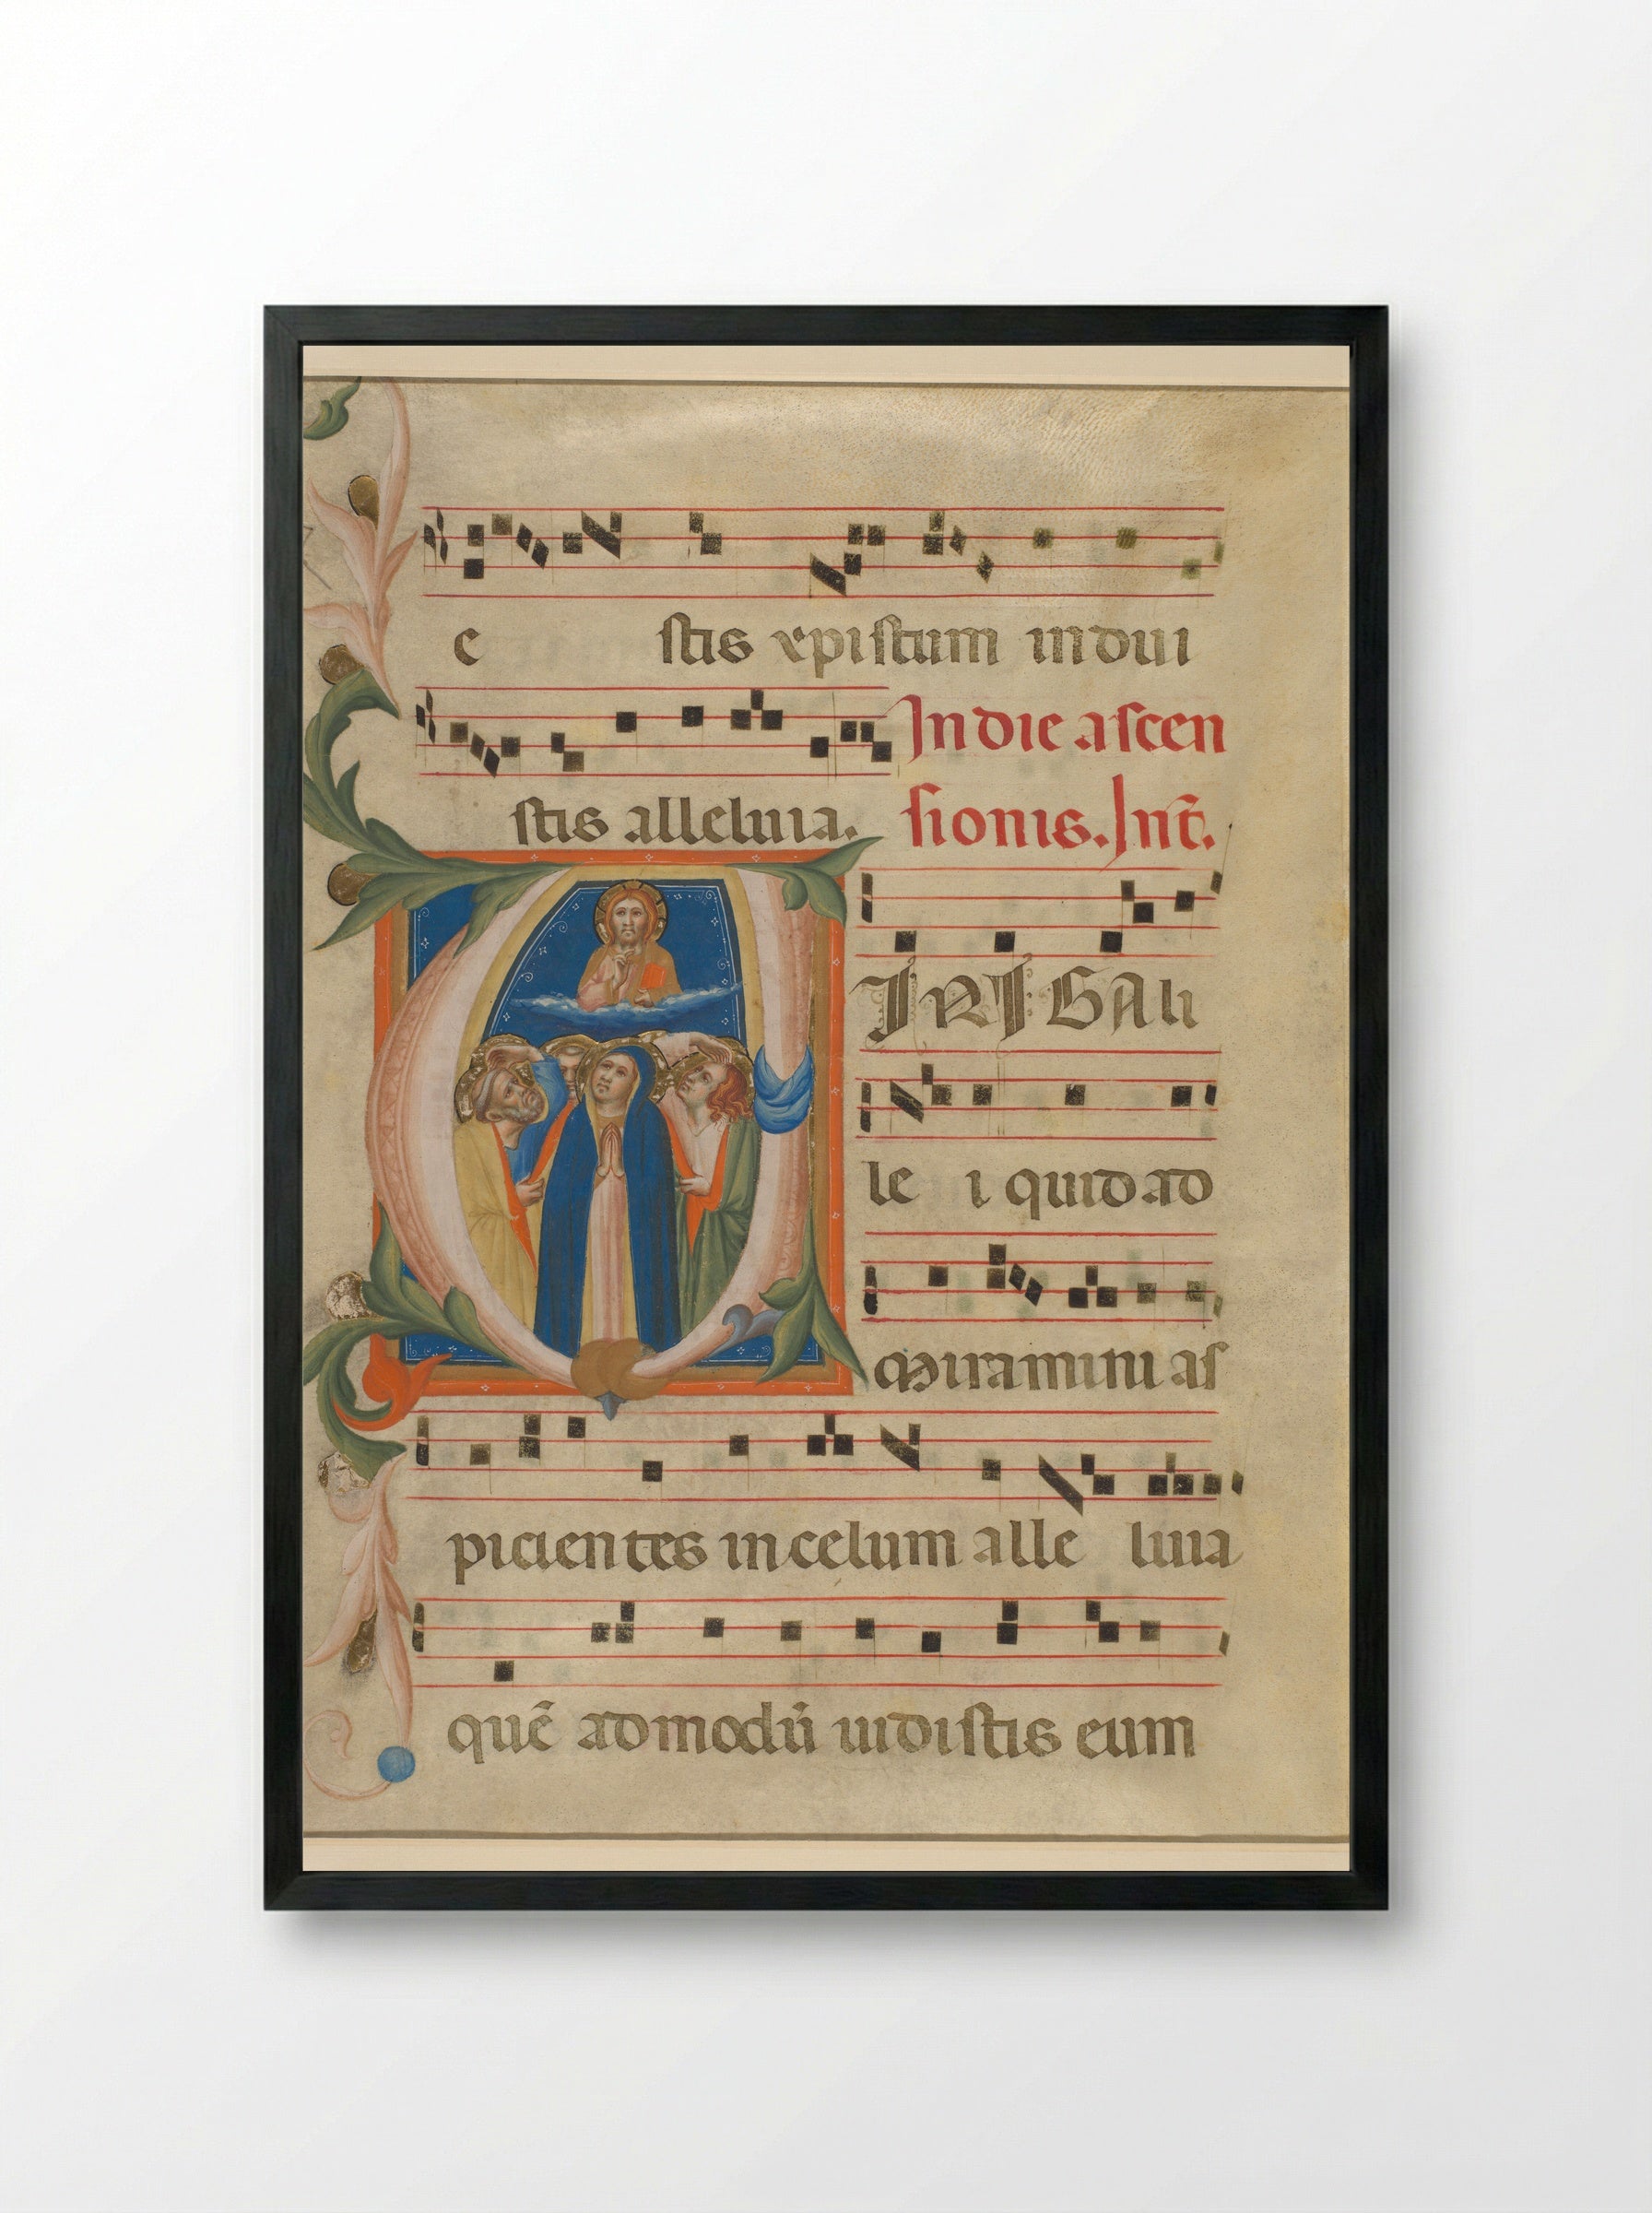 e stis xpistum indui
stis alleluia. In die ascen
sionis. Int̄.
VIRI GALI
le i quid ad
miramini as
picientes in celum alle luia
quē admodū uidistis eum